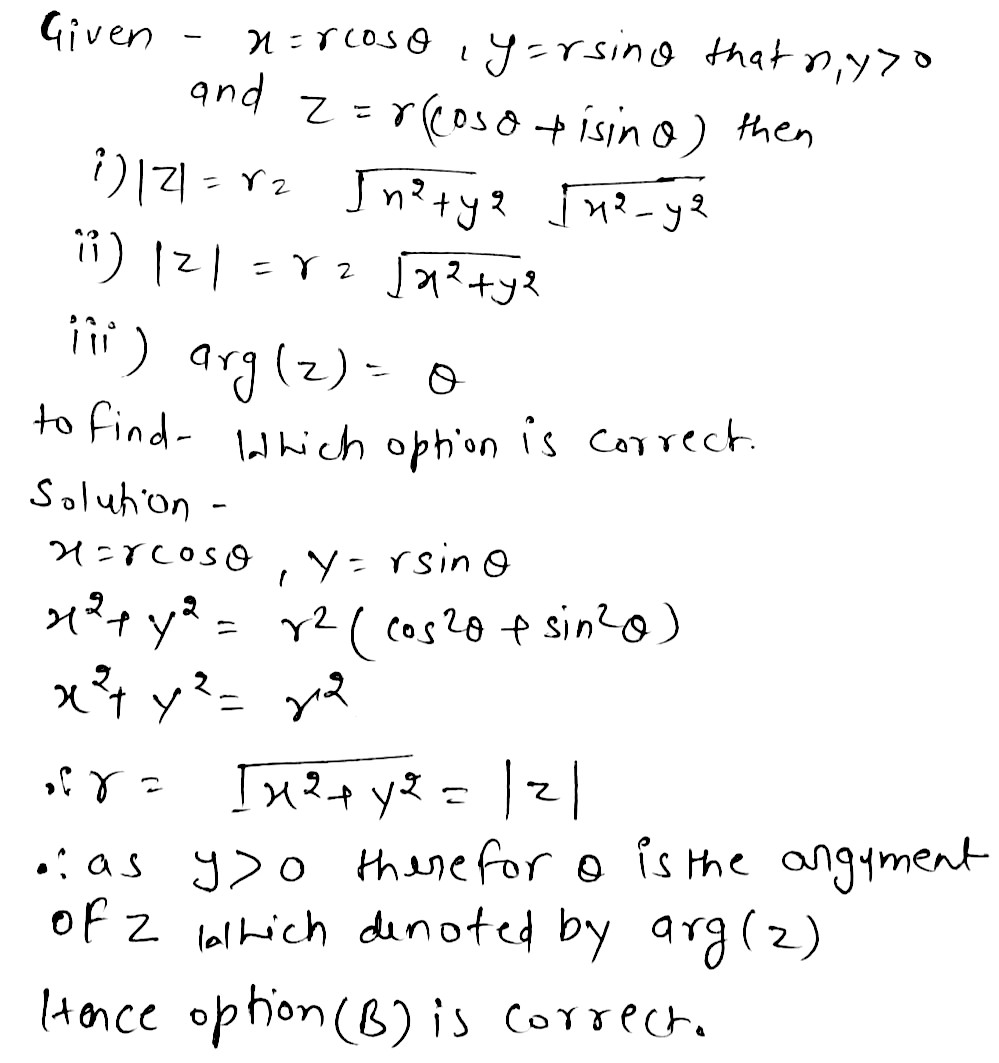 Given - x = rcosθ , y = rsinθ that x,y>0
and z = r(cosθ + isinθ) then
i) |z| = r = √x²+y² √x²-y²
ii) |z| = r = √x²+y²
iii) arg(z) = θ
to find - Which option is correct.
Solution -
x = rcosθ , y = rsinθ
x²+y² = r²(cos²θ + sin²θ)
x²+y² = r²
∴ r = √x²+y² = |z|
∴ as y>0 therefor θ is the angyment
of z which denoted by arg(z)
Hence option (B) is correct.